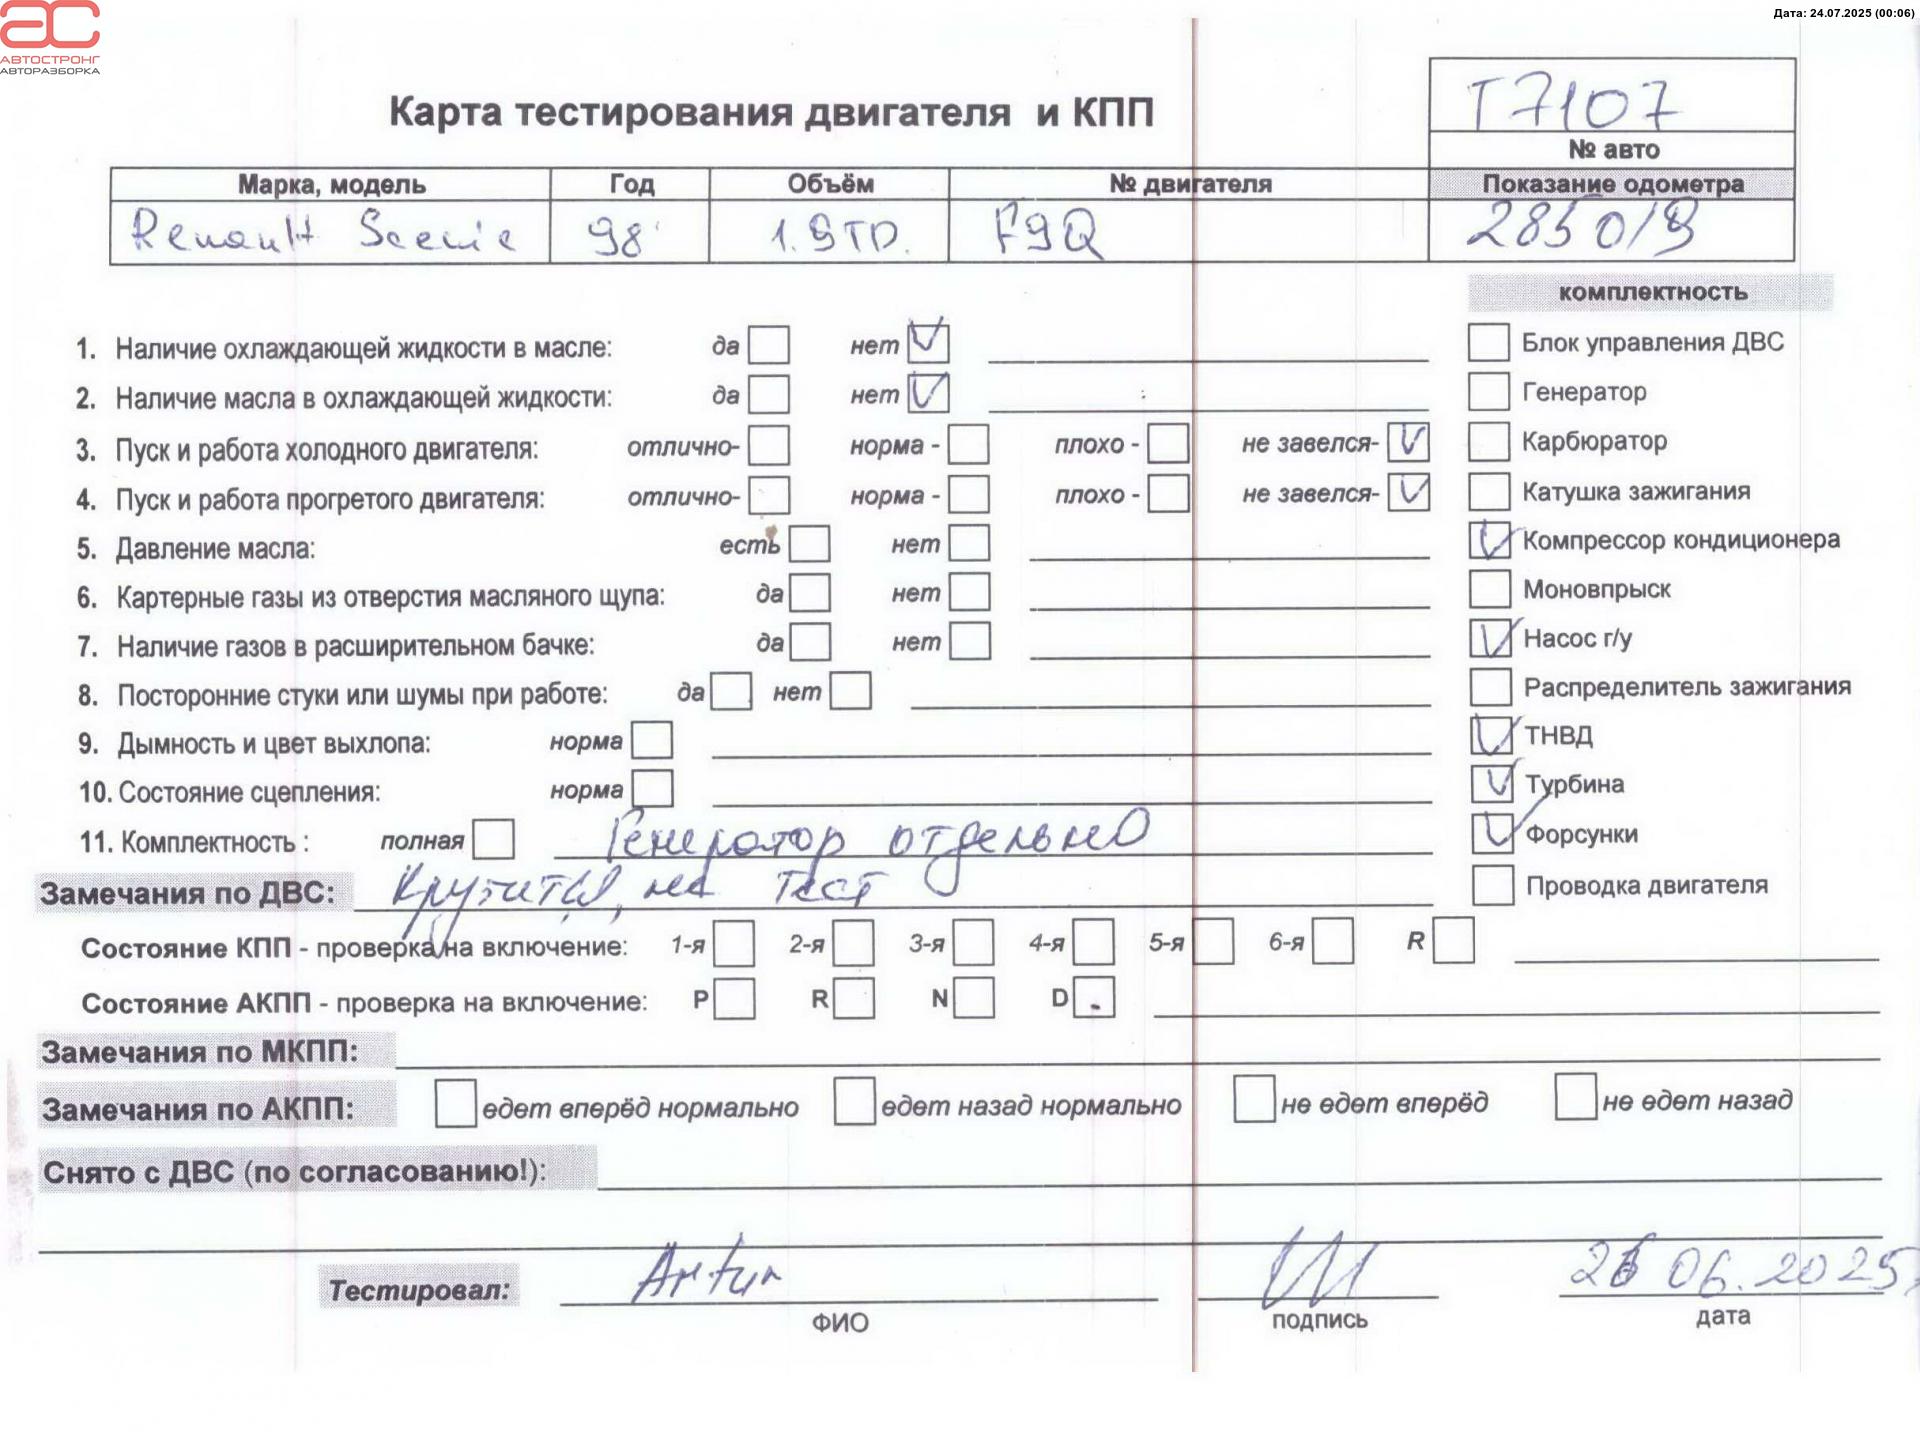 Дата: 24.07.2025 (00:06)
АВТОСТРОНГ
АВТОРАЗБОРКА
Карта тестирования двигателя и КПП
T7107
№ авто
Марка, модель Год Объём № двигателя Показание одометра
Renault Scenic 98 1.9TD. F9Q 285019
комплектность
1. Наличие охлаждающей жидкости в масле: да нет
Блок управления ДВС
2. Наличие масла в охлаждающей жидкости: да нет
Генератор
3. Пуск и работа холодного двигателя: отлично- норма - плохо - не завелся-
Карбюратор
4. Пуск и работа прогретого двигателя: отлично- норма - плохо - не завелся-
Катушка зажигания
5. Давление масла: есть нет
Компрессор кондиционера
6. Картерные газы из отверстия масляного щупа: да нет
Моновпрыск
7. Наличие газов в расширительном бачке: да нет
Насос г/у
8. Посторонние стуки или шумы при работе: да нет
Распределитель зажигания
9. Дымность и цвет выхлопа: норма
ТНВД
10. Состояние сцепления: норма
Турбина
11. Комплектность : полная Генератор отдельно
Форсунки
Замечания по ДВС: Крутится, на тест
Проводка двигателя
Состояние КПП - проверка на включение: 1-я 2-я 3-я 4-я 5-я 6-я R
Состояние АКПП - проверка на включение: P R N D
Замечания по МКПП:
Замечания по АКПП: едет вперёд нормально едет назад нормально не едет вперёд не едет назад
Снято с ДВС (по согласованию!):
Тестировал: Artur 26 06.2025
ФИО подпись дата